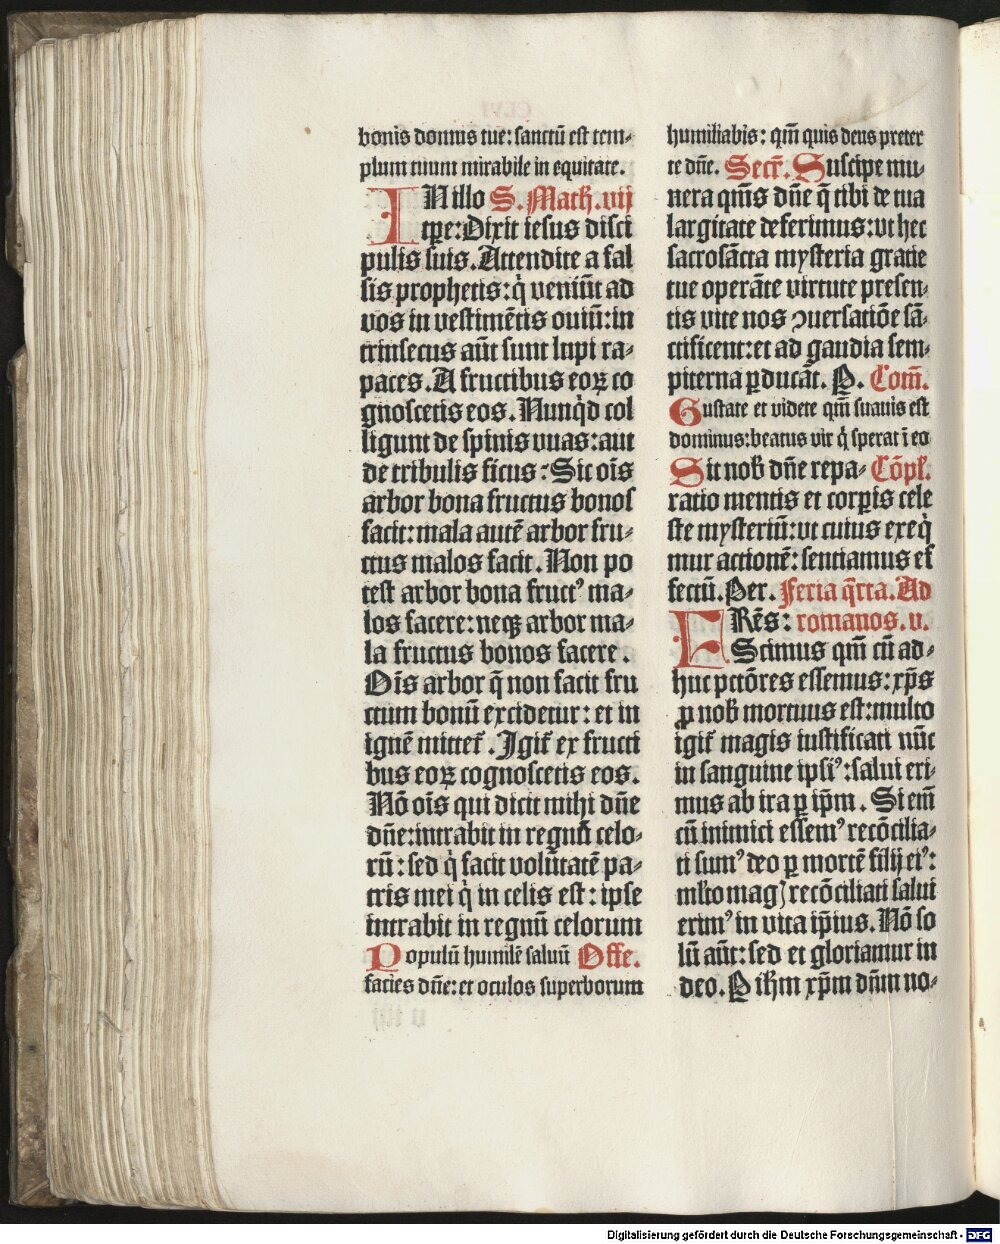 bonis domus tue: sanctū est tem-
plum tuum mirabile in equitate.
IN illo S. Math̄. vij
tpe: Dixit iesus disci
pulis suis. Attendite a fal
sis prophetis: q̇ veniūt ad
vos in vestimētis ouiū: in
trinsecus aūt sunt lupi ra-
paces. A fructibus eoꝝ co
gnoscetis eos. Nunq̇d col
ligunt de spinis vuas: aut
de tribulis ficus: Sic oīs
arbor bona fructus bonos
facit: mala autē arbor fru-
ctus malos facit. Non po
test arbor bona fructꝰ ma-
los facere: neqꝫ arbor ma-
la fructus bonos facere.
Oīs arbor q̄ non facit fru
ctum bonū excidetur: et in
ignē mittet̄. Igit̄ ex fructi
bus eoꝝ cognoscetis eos.
Nō oīs qui dicit mihi dn̄e
dn̄e: intrabit in regnū celo-
rū: sed q̇ facit volūtatē pa-
tris mei q̇ in celis est: ipse
intrabit in regnū celorum
Populū humilē saluū Offe.
facies dn̄e: et oculos superborum
humiliabis: qm̄ quis deus preter
te dn̄e. Secr̄. Suscipe mu-
nera qm̄s dn̄e q̄ tibi de tua
largitate deferimus: vt hec
sacrosācta mysteria gratie
tue operāte virtute presen-
tis vite nos ꝯuersatiōe sā-
ctificent: et ad gaudia sem-
piterna ꝑducāt. P. Com̄.
Gustate et videte qm̄ suauis est
dominus: beatus vir q̇ sperat ī eo
Sit nob̄ dn̄e repa- Cōpl̄.
ratio mentis et corꝑis cele
ste mysteriū: vt cuius exeq̇
mur actionē: sentiamus ef
fectū. Per. Feria q̄rta. Ad
FRēs: romanos. v.
Scimus qm̄ cū ad-
huc pctōres essemus: xp̄s
ꝓ nob̄ mortuus est: multo
igit̄ magis iustificati nūc
in sanguine ipsiꝰ: salui eri-
mus ab ira ꝑ ip̄m. Si em̄
cū inimici essemꝰ recōcilia-
ti sumꝰ deo ꝑ mortē filij eiꝰ:
ml̄to magꝭ recōciliati salui
erimꝰ in vita ip̄ius. Nō so
lū aūt: sed et gloriamur in
deo. P ih̄m xp̄m dn̄m no-
Digitalisierung gefördert durch die Deutsche Forschungsgemeinschaft - DFG